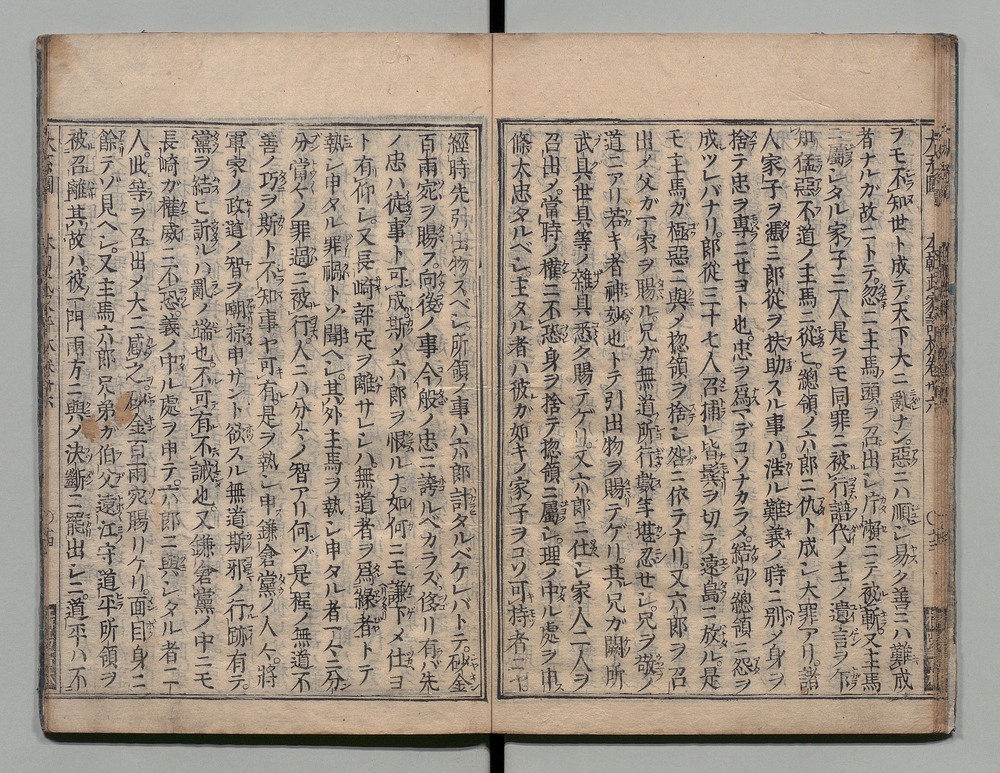 ヲモ不知世ト成テ天下大ニ亂ナン惡ニハ順レ易ク善ニハ難成
者ナルガ故ニトテ忽ニ主馬頭ヲ召出レ片瀬ニテ被斬又主馬
ニ屬シタル家子三人是ラモ同罪ニ被行譜代ノ主ノ遺言ヲ
知猛惡不道ノ主馬ニ從ヒ總領ノ六郎ニ仇ト成シ大罪アリ諸
人家ノ子ヲ憑ミ郎從ヲ扶助スル事ハ浩ル難義ノ時ニ別メ身ヲ
捨テ忠ヲ專ニセヨト也忠ヲ爲マデコソナカラメ結句總領ニ怨ヲ
成ツレバナリ郎從三十七人召捕レ皆髪ヲ切テ遠島ニ放ル是
モ主馬ガ極惡ニ與メ惣領ヲ捨レ咎ニ依テナリ又六郎ヲ召
出メ父ガ一家ヲ賜ル兄ガ無道ノ所行數年堪忍セシ兄ヲ敬メ
道ニアリ若キ者神妙也トテ引出物ヲ賜テゲリ其兄ガ闕所
武具世具等ノ雜具悉ク賜テゲリ又六郎ニ仕レ家人二人ヲ
召出メ當時ノ權ニ不恐身ヲ捨テ惣領ニ屬レ理ノ中ル處ヲ申
條大忠タルベレ主タル者ハ彼ガ如キノ家子ヲコソ可持者ニ
經時先引出物スベレ所領ノ事ハ六郎計タルベケレバトテ砂金
百兩宛ヲ賜フ向後ノ事今般ノ忠ニ誇ルベカラズ侈リ有バ先
ノ忠ハ徒事ト可成斯メ六郎ヲ恨ルナ如何ニモ謙下メ仕ヨ
ト有仰レ又長崎評定ヲ離サレシハ無道者ヲ爲祿者トテ
執レ申タル罪禍トゾ聞ヘシ其外主馬ヲ執レ申タル者人々ニ分
分當々ノ罪過ニ被行人ニハ分々ノ智アリ何ゾ是程ノ無道不
善ノ巧ヲ斯ト不知事ヤ可有是ヲ執レ申鎌倉黨ノ人々將
軍家ノ政道ノ智ヲ嘲掠申サント欲スル無道斯邪ノ行跡有テ
黨ヲ結ヒ訴ルハ亂ノ端也不可有不誡也又鎌倉黨ノ中ニモ
長崎ガ權威ニ不恐義ノ中ル處ヲ申テ六郎ニ與シタル者二
人此等ヲ召出メ大ニ感之砂金百兩宛賜リケリ面目身ニ
餘テゾ見ヘシ又主馬六郎兄弟ガ伯父遠江守道平所領ヲ
被召離其故ハ彼一門兩方ニ與メ決斷ニ罷出レニ道平ハ不